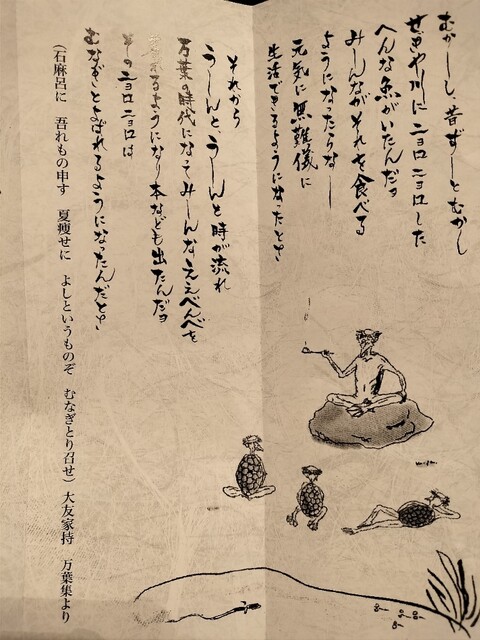 むかーし、昔ずーとむかし
川にニョロニョロした
へんな魚がいたんだヨ
みーんながそれを食べる
ようになったらなー
元気に無難儀に
生活できるようになったとさ
それから
うーんとうーんと時が流れ
万葉の時代になってみーんなええべんべを
るようになり本なども出たんだヨ
そのニョロニョロは
むなぎとよばれるようになったんだとさ
(石麻呂に 吾れもの申す 夏痩せに よしというものぞ むなぎとり召せ) 大友家持 万葉集より